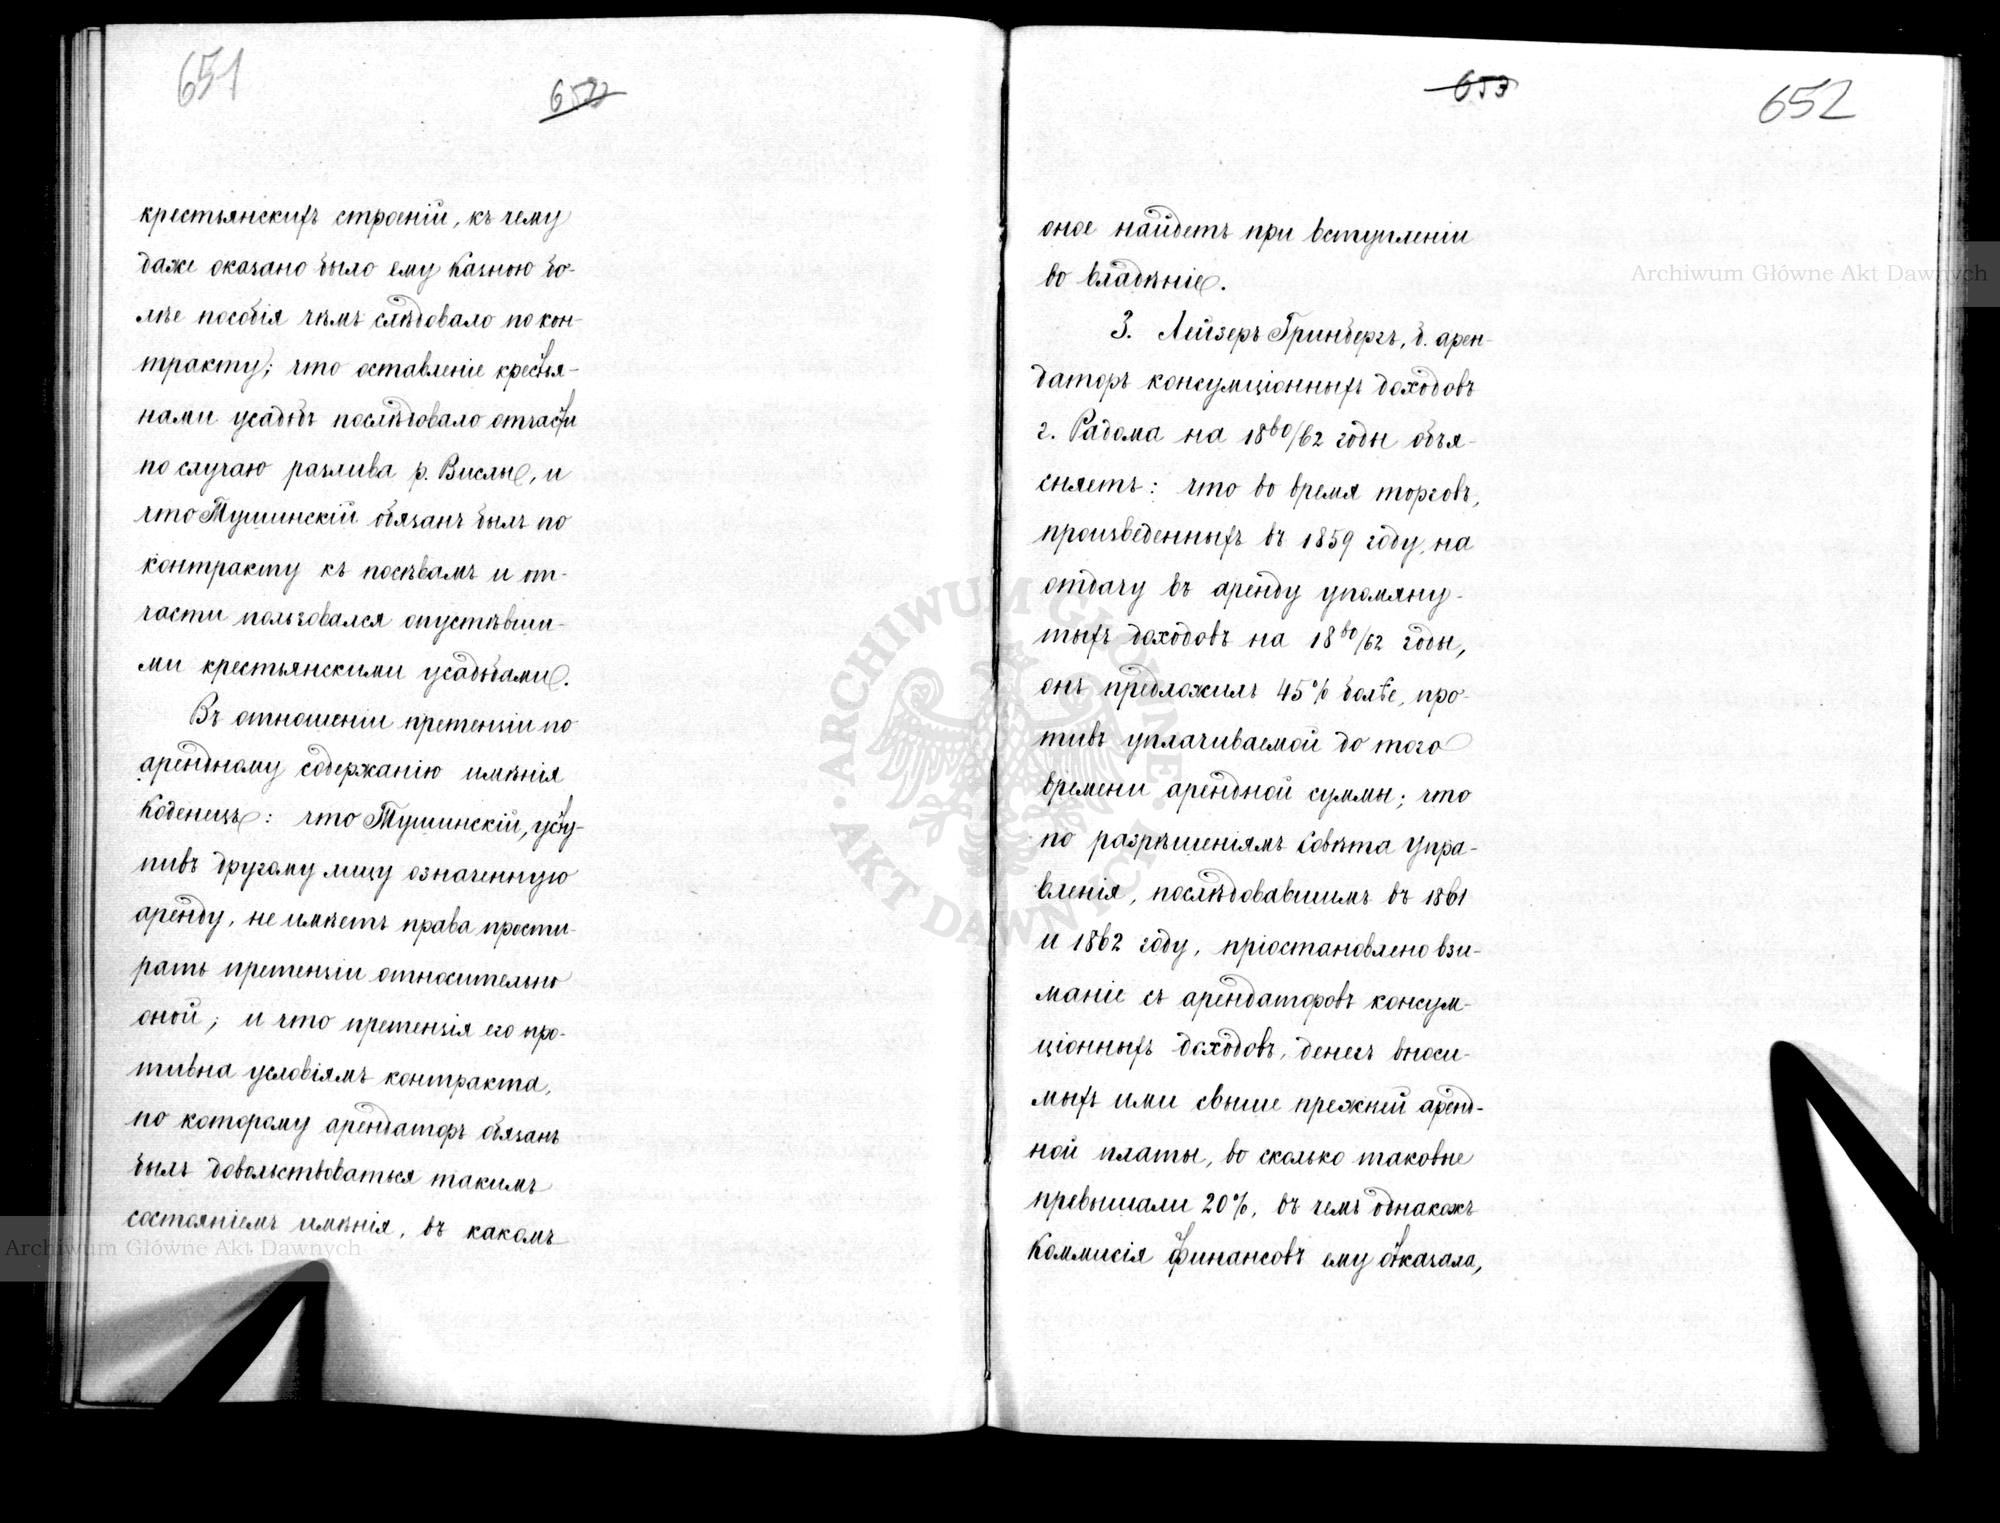 651
652
крестьянскихъ строеній, къ чему
даже оказано было ему Казною бо-
лѣе пособія чѣмъ слѣдовало по кон-
тракту; что оставленіе крестья-
нами усадьбъ послѣдовало отчасти
по случаю разлива р. Вислы, и
что Тушинскій обязанъ былъ по
контракту къ посѣвамъ и от-
части пользовался опустѣвши-
ми крестьянскими усадьбами.
Въ отношеніи претензіи по
арендному содержанію имѣнія
Коденецъ: что Тушинскій, усту-
пивъ другому лицу означенную
аренду, не имѣетъ права прости-
рать претензіи относительно
оной; и что претензія его про-
тивна условіямъ контракта,
по которому арендаторъ обязанъ
былъ довольствоваться такимъ
состояніемъ имѣнія, въ какомъ
653
652
оное найдетъ при вступленіи
во владѣніе.
3. Лейзеръ Гринбергъ, б. арен-
даторъ консумціонныхъ доходовъ
г. Радома на 1860/62 годы объя-
сняетъ: что во время торговъ,
произведенныхъ въ 1859 году, на
отдачу въ аренду упомяну-
тыхъ доходовъ на 1860/62 годы,
онъ предложилъ 45% болѣе, про-
тивъ уплачиваемой до того
времени арендной суммы; что
по разрѣшеніямъ Совѣта Упра-
вленія, послѣдовавшимъ въ 1861
и 1862 году, пріостановлено взи-
маніе съ арендаторовъ консум-
ціонныхъ доходовъ, денегъ вноси-
мыхъ ими свыше прежней аренд-
ной платы, во сколько таковые
превышали 20%, въ чемъ однакожъ
Коммисія Финансовъ ему отказала,
Archiwum Główne Akt Dawnych
Archiwum Główne Akt Dawnych
ARCHIWUM GŁÓWNE AKT DAWNYCH